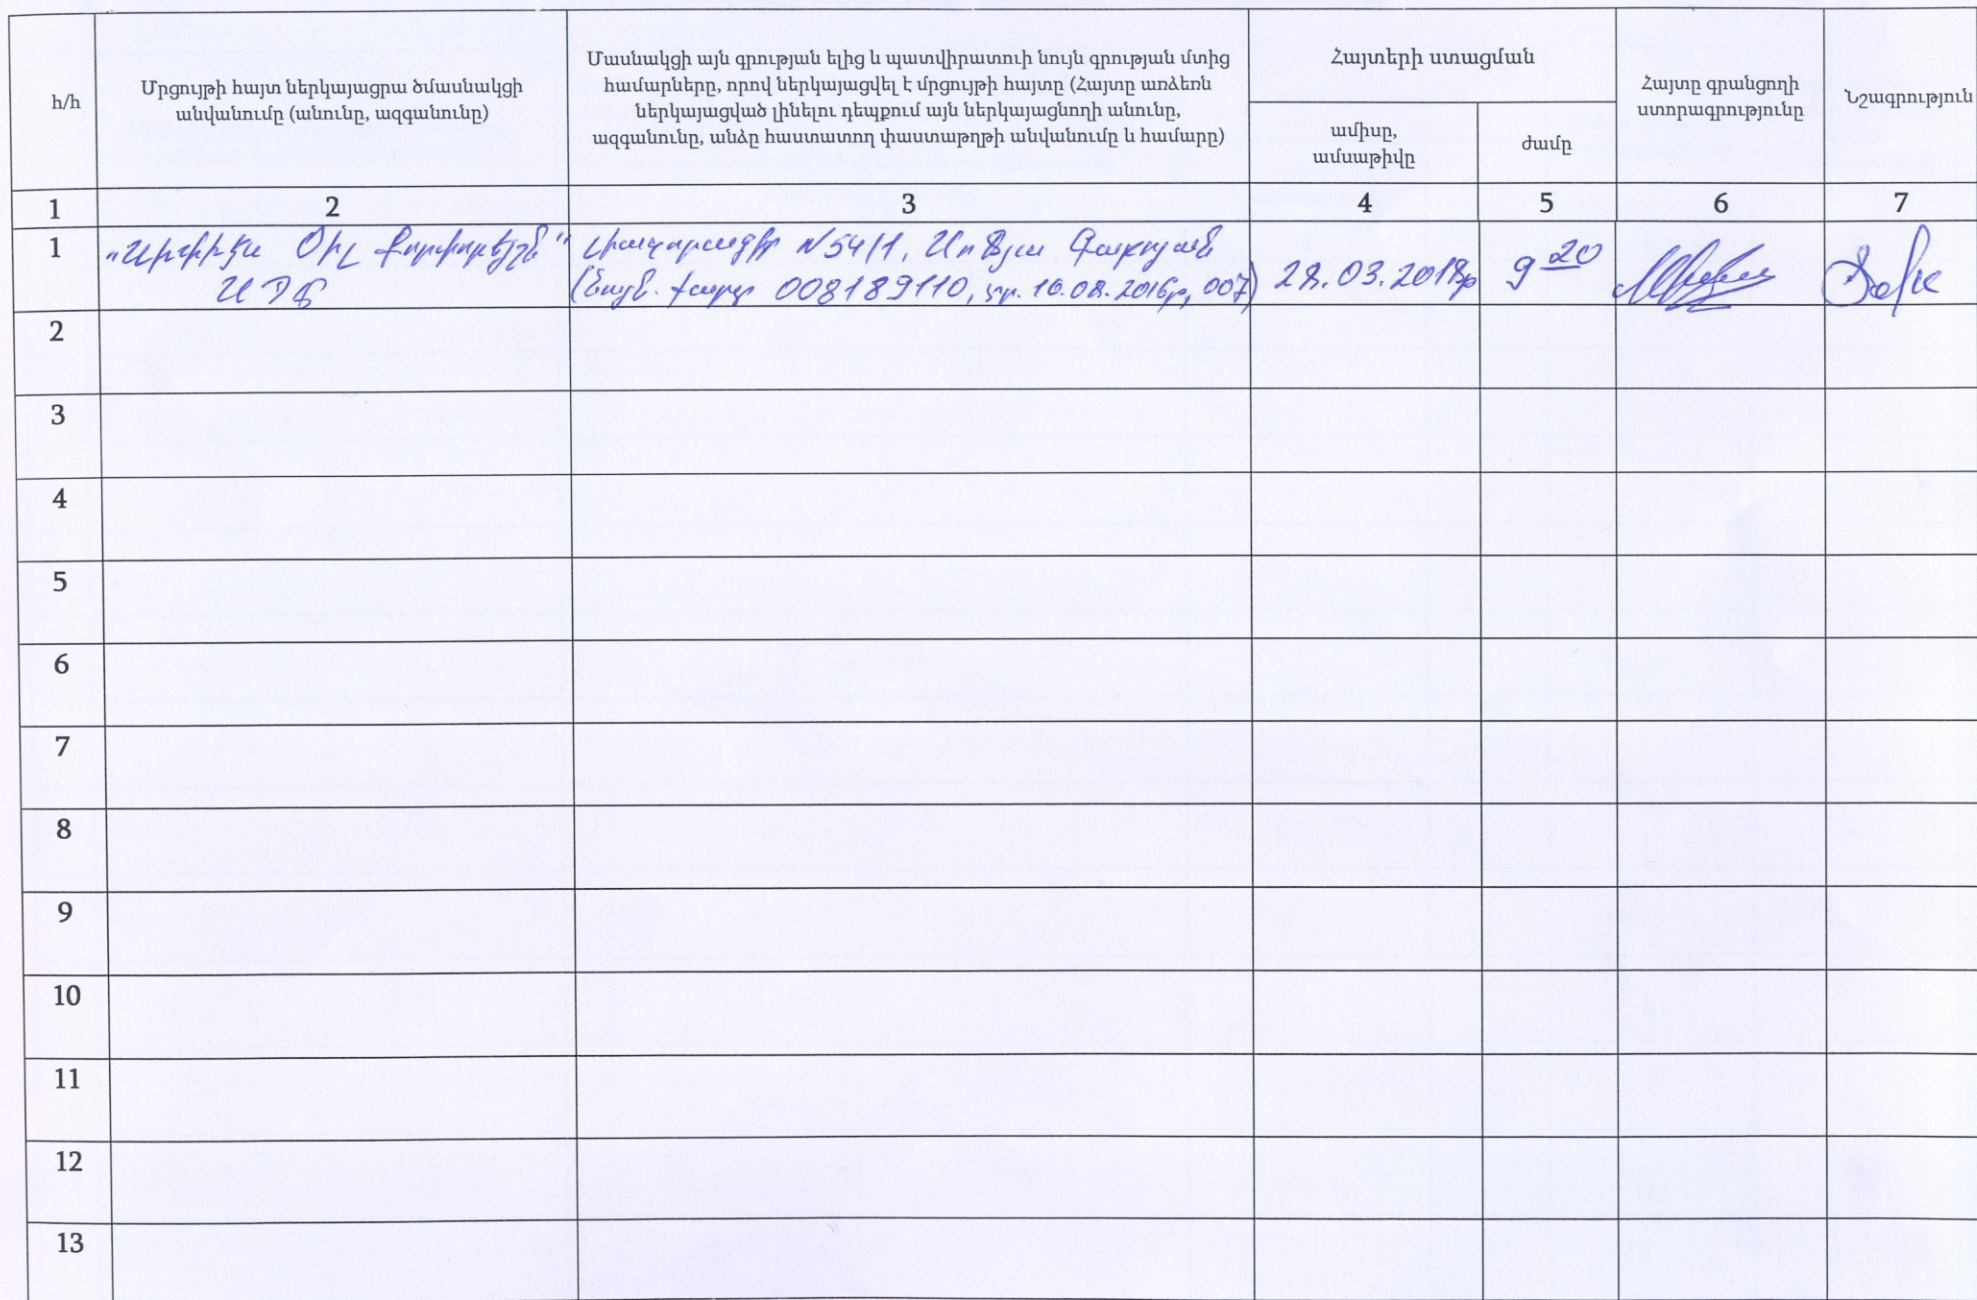 հ/հ
Մրցույթի հայտ ներկայացրա ծմասնակցի
անվանումը (անունը, ազգանունը)
Մասնակցի այն գրության ելից և պատվիրատուի նույն գրության մտից
համարները, որով ներկայացվել է մրցույթի հայտը (Հայտը առձեռն
ներկայացված լինելու դեպքում այն ներկայացնողի անունը,
ազգանունը, անձը հաստատող փաստաթղթի անվանումը և համարը)
Հայտերի ստացման
ամիսը,
ամսաթիվը
ժամը
Հայտը գրանցողի
ստորագրությունը
Նշագրություն
1 2 3 4 5 6 7
1
ՍՊԸ
N54/1,
008189110, 10.08.2016թ, 007)
28.03.2018թ
9 20
2
3
4
5
6
7
8
9
10
11
12
13